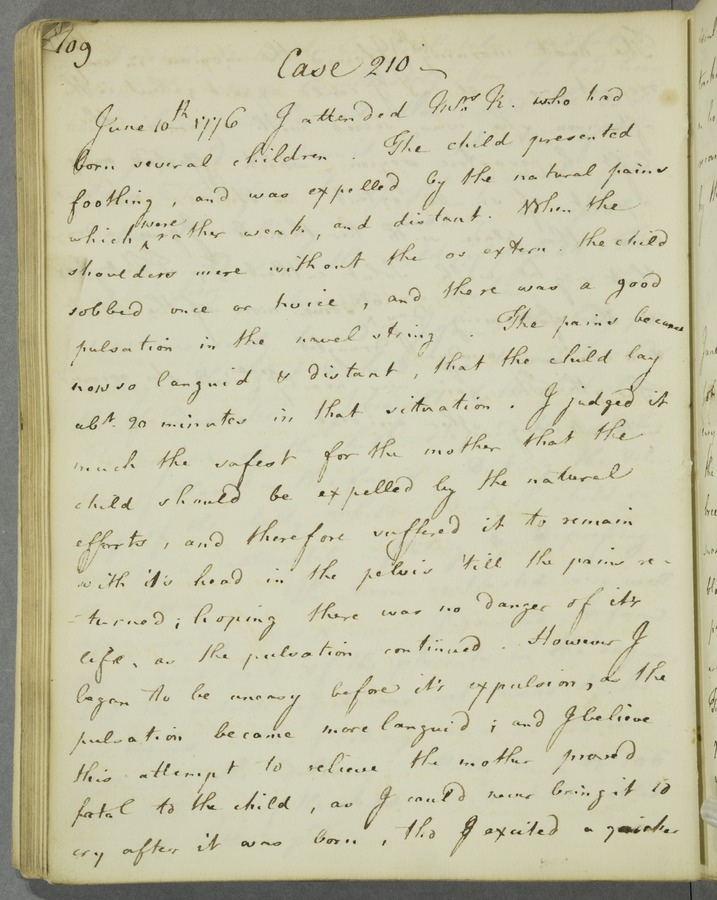 109
Case 210
June 10th 1776 I attended Mrs. K. who had
born several children. The child presented
footling, and was expelled by the natural pains
which were rather weak, and distant. When the
shoulders were without the os extern. the child
sobbed once or twice, and there was a good
pulsation in the navel string. The pains became
now so languid & distant, that the child lay
abt. 20 minutes in that situation. I judged it
much the safest for the mother that the
child should be expelled by the natural
efforts, and therefore suffered it to remain
with it's head in the pelvis 'till the pains re-
-turned; hoping there was no danger of it's
life, as the pulsation continued. However I
began to be uneasy before it's expulsion, as the
pulsation became more languid; and I believe
this attempt to relieve the mother proved
fatal to the child, as I could never bring it to
cry after it was born, tho I excited a quicker